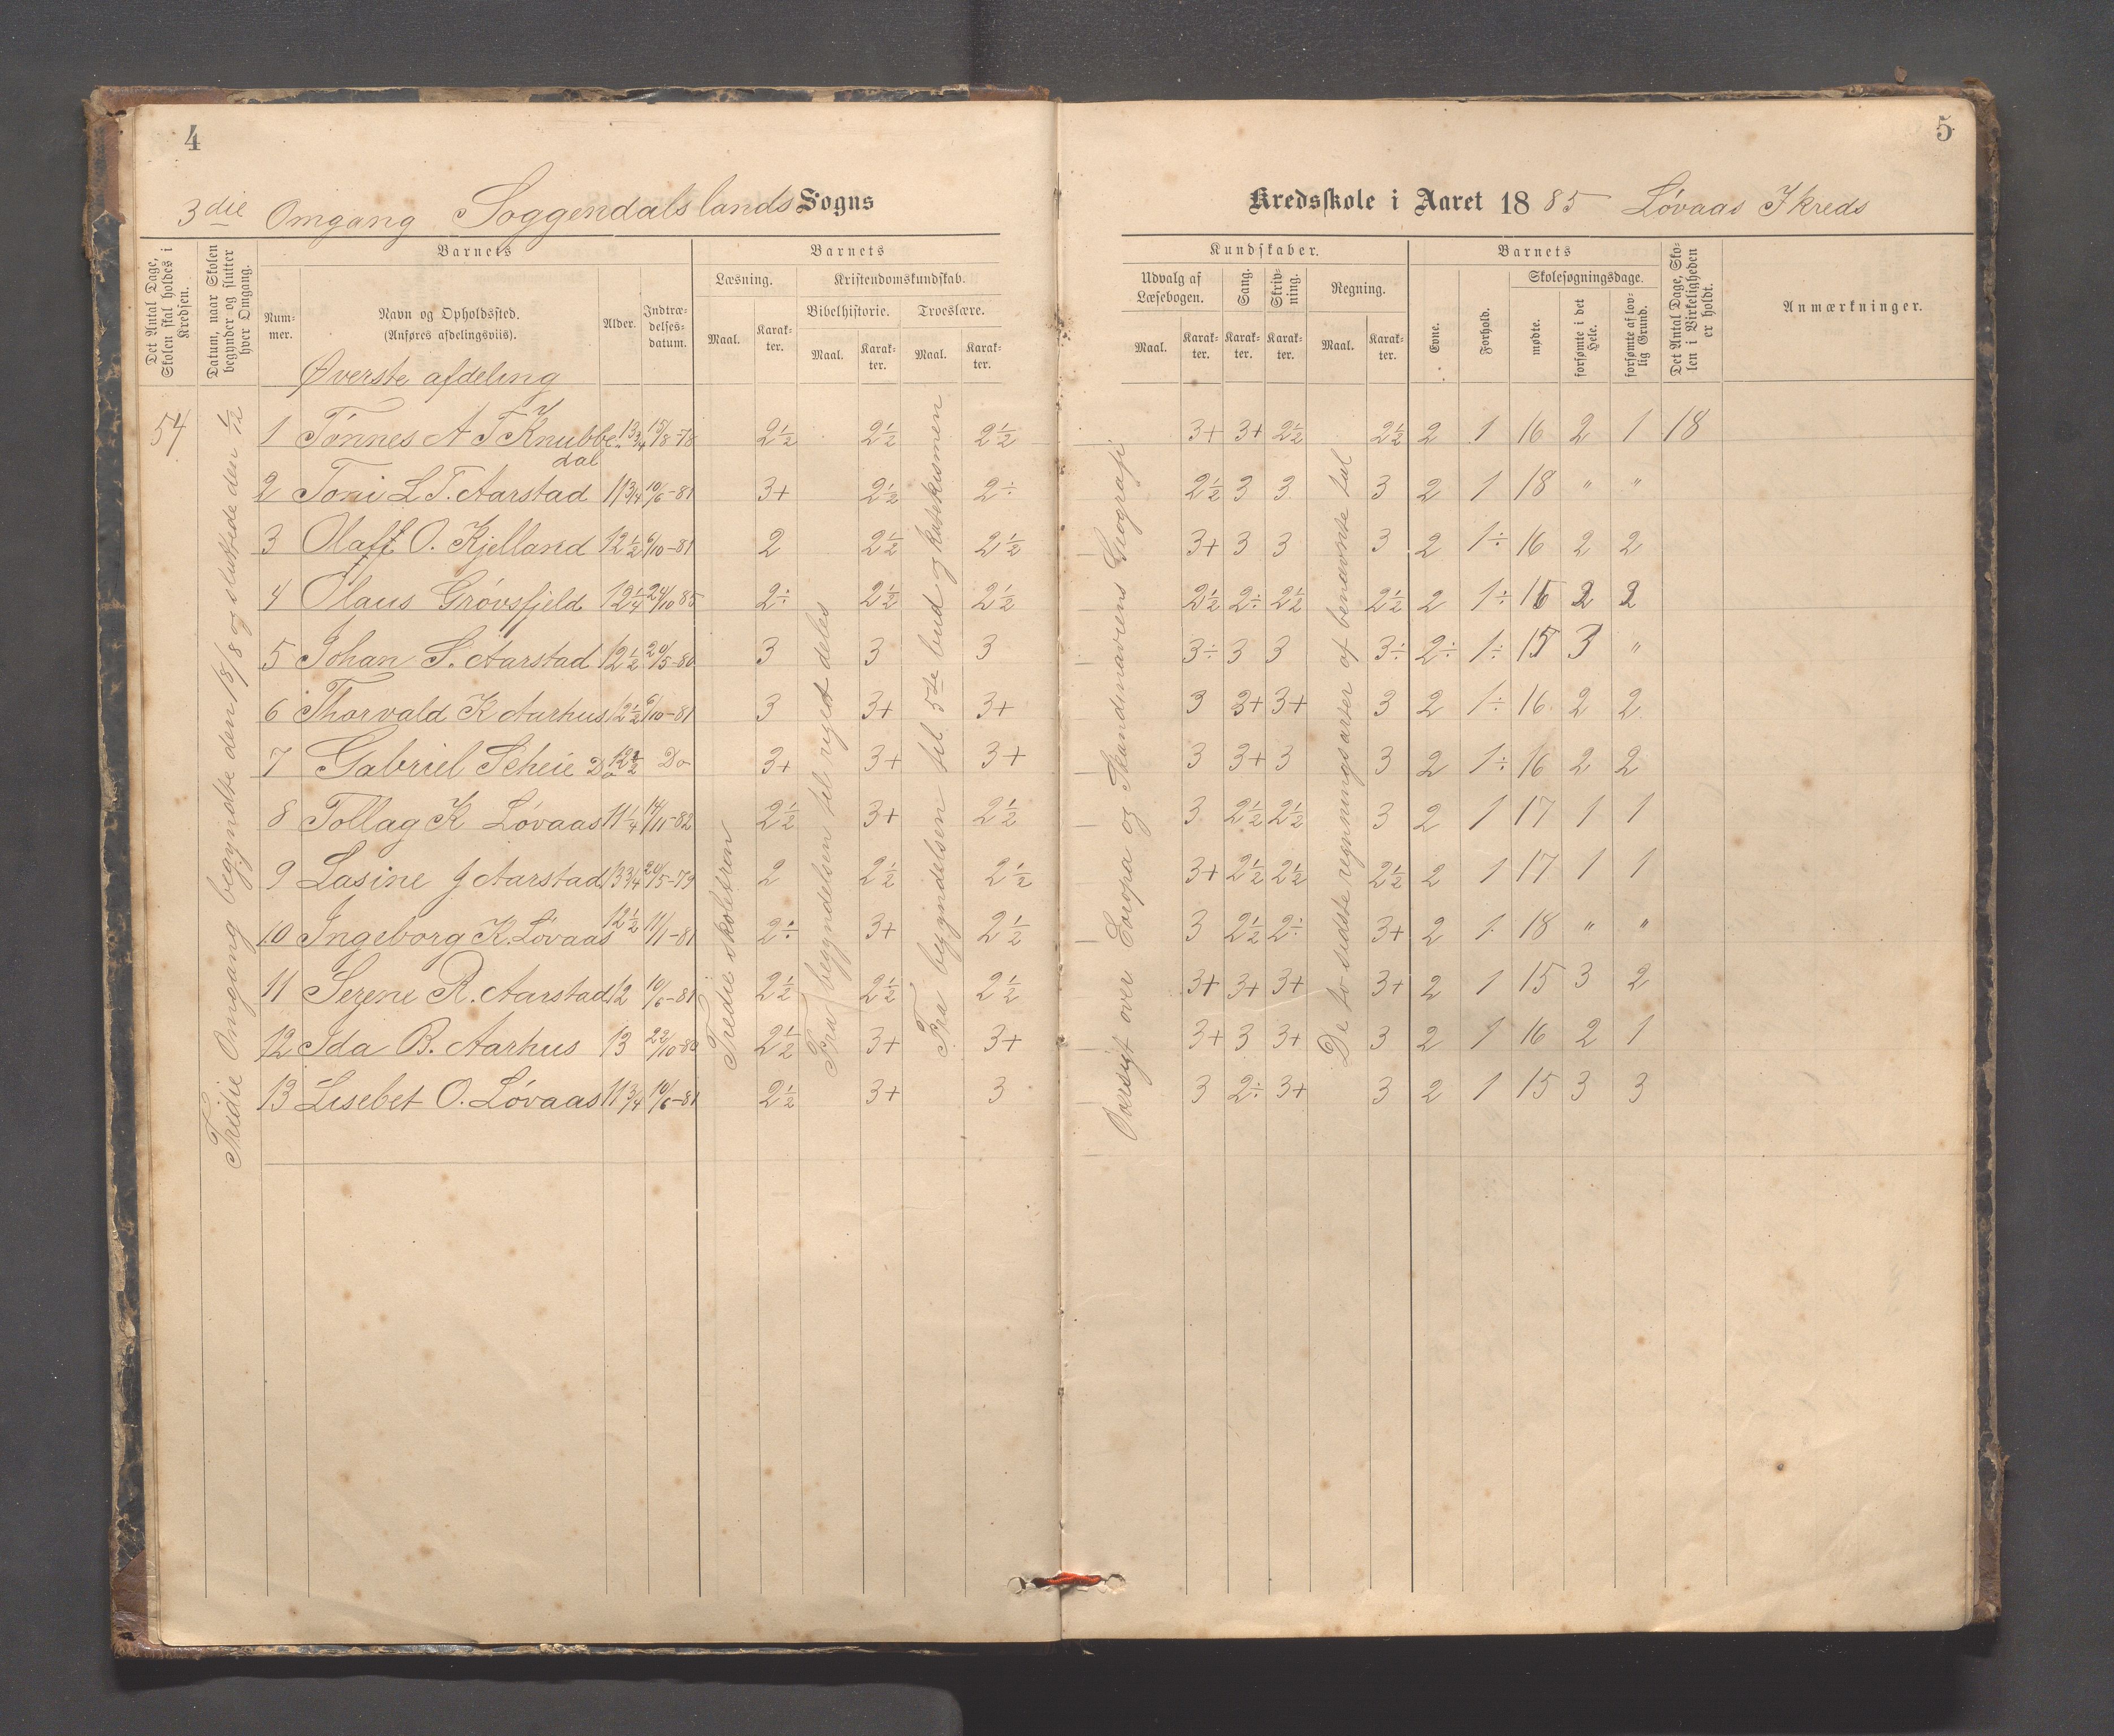 4
3die Omgang Soggendalslands Sogns
Det Antal Dage, Skolen skal holdes i Kredsen.
Datum, naar Skolen begynder og slutter hver Omgang.
Barnets
Num-mer.
Navn og Opholdssted.
(Anføres afdelingsviis).
Alder.
Indtræ-delses-datum.
Barnets
Læsning.
Maal.
Karak-ter.
Kristendomskundskab.
Bibelhistorie.
Maal.
Karak-ter.
Troeslære.
Maal.
Karak-ter.
Øverste afdeling
54
Tredie Omgang begyndte den 18/8 og sluttede den 1/12
1 Tønnes A T Knubbe dal 13 3/4 15/8-78 2½ 2½ 2½
2 Toni L T. Aarstad 11 3/4 10/6-81 3+ 2½ 2÷
3 Olaff O. Kjelland 12½ 6/10-81 2 2½ 2½
4 Olaus Grøvsfjeld 12¼ 24/10 85 2÷ 2½ 2½
5 Johan S. Aarstad 12½ 20/5-80 3 3 3
6 Thorvald K Aarhus 12½ 6/10-81 3 3+ 3+
7 Gabriel Scheie Do 12½ Do 3+ 3+ 3+
8 Tollag K Løvaas 11¼ 14/11-82 2½ 3+ 2½
9 Lasine J Aarstad 13 3/4 20/5-79 2 2½ 2½
10 Ingeborg K. Løvaas 12½ 11/1-81 2÷ 3+ 2½
11 Serene R. Aarstad 12 10/6-81 2½ 2½ 2½
12 Ida B. Aarhus 13 22/10-80 2½ 3+ 3+
13 Lisebet O. Løvaas 11 3/4 10/6-81 2½ 3+ 3
Tredie skoletrin
Fra begyndelsen til riget deles
Fra begyndelsen til 5te bud og katekismen
5
Kredsskole i Aaret 1885 Løvaas Ikreds
Kundskaber.
Udvalg af Læsebogen.
Maal.
Karak-ter.
Sang.
Karak-ter.
Skriv-ning.
Karak-ter.
Regning.
Maal.
Karak-ter.
Barnets
Evne.
Forhold.
Skolesøgningsdage.
mødte.
forsømte i det Hele.
forsømte af lov-lig Grund.
Det Antal Dage, Sko-len i Virkeligheden er holdt.
Anmærkninger.
3+ 3+ 2½ 2½ 2 1 16 2 1 18
2½ 3 3 3 2 1 18 " "
3+ 3 3 3 2 1÷ 16 2 2
2½ 2÷ 2½ 2½ 2 1÷ 16 2 2
3÷ 3 3 3÷ 2÷ 1÷ 15 3 "
3 3+ 3+ 3 2 1÷ 16 2 2
3 3+ 3 3 2 1÷ 16 2 2
3 2½ 2½ 3 2 1 17 1 1
3+ 2½ 2½ 2½ 2 1 17 1 1
3 2½ 2÷ 3+ 2 1 18 " "
3+ 3+ 3+ 3+ 2 1 15 3 2
3+ 3 3+ 3 2 1 16 2 1
3 2÷ 3+ 3 2 1 15 3 3
Oversigt over Evropa og Skandinaviens Geografi
De to sidste regningsarter af benævnte tal